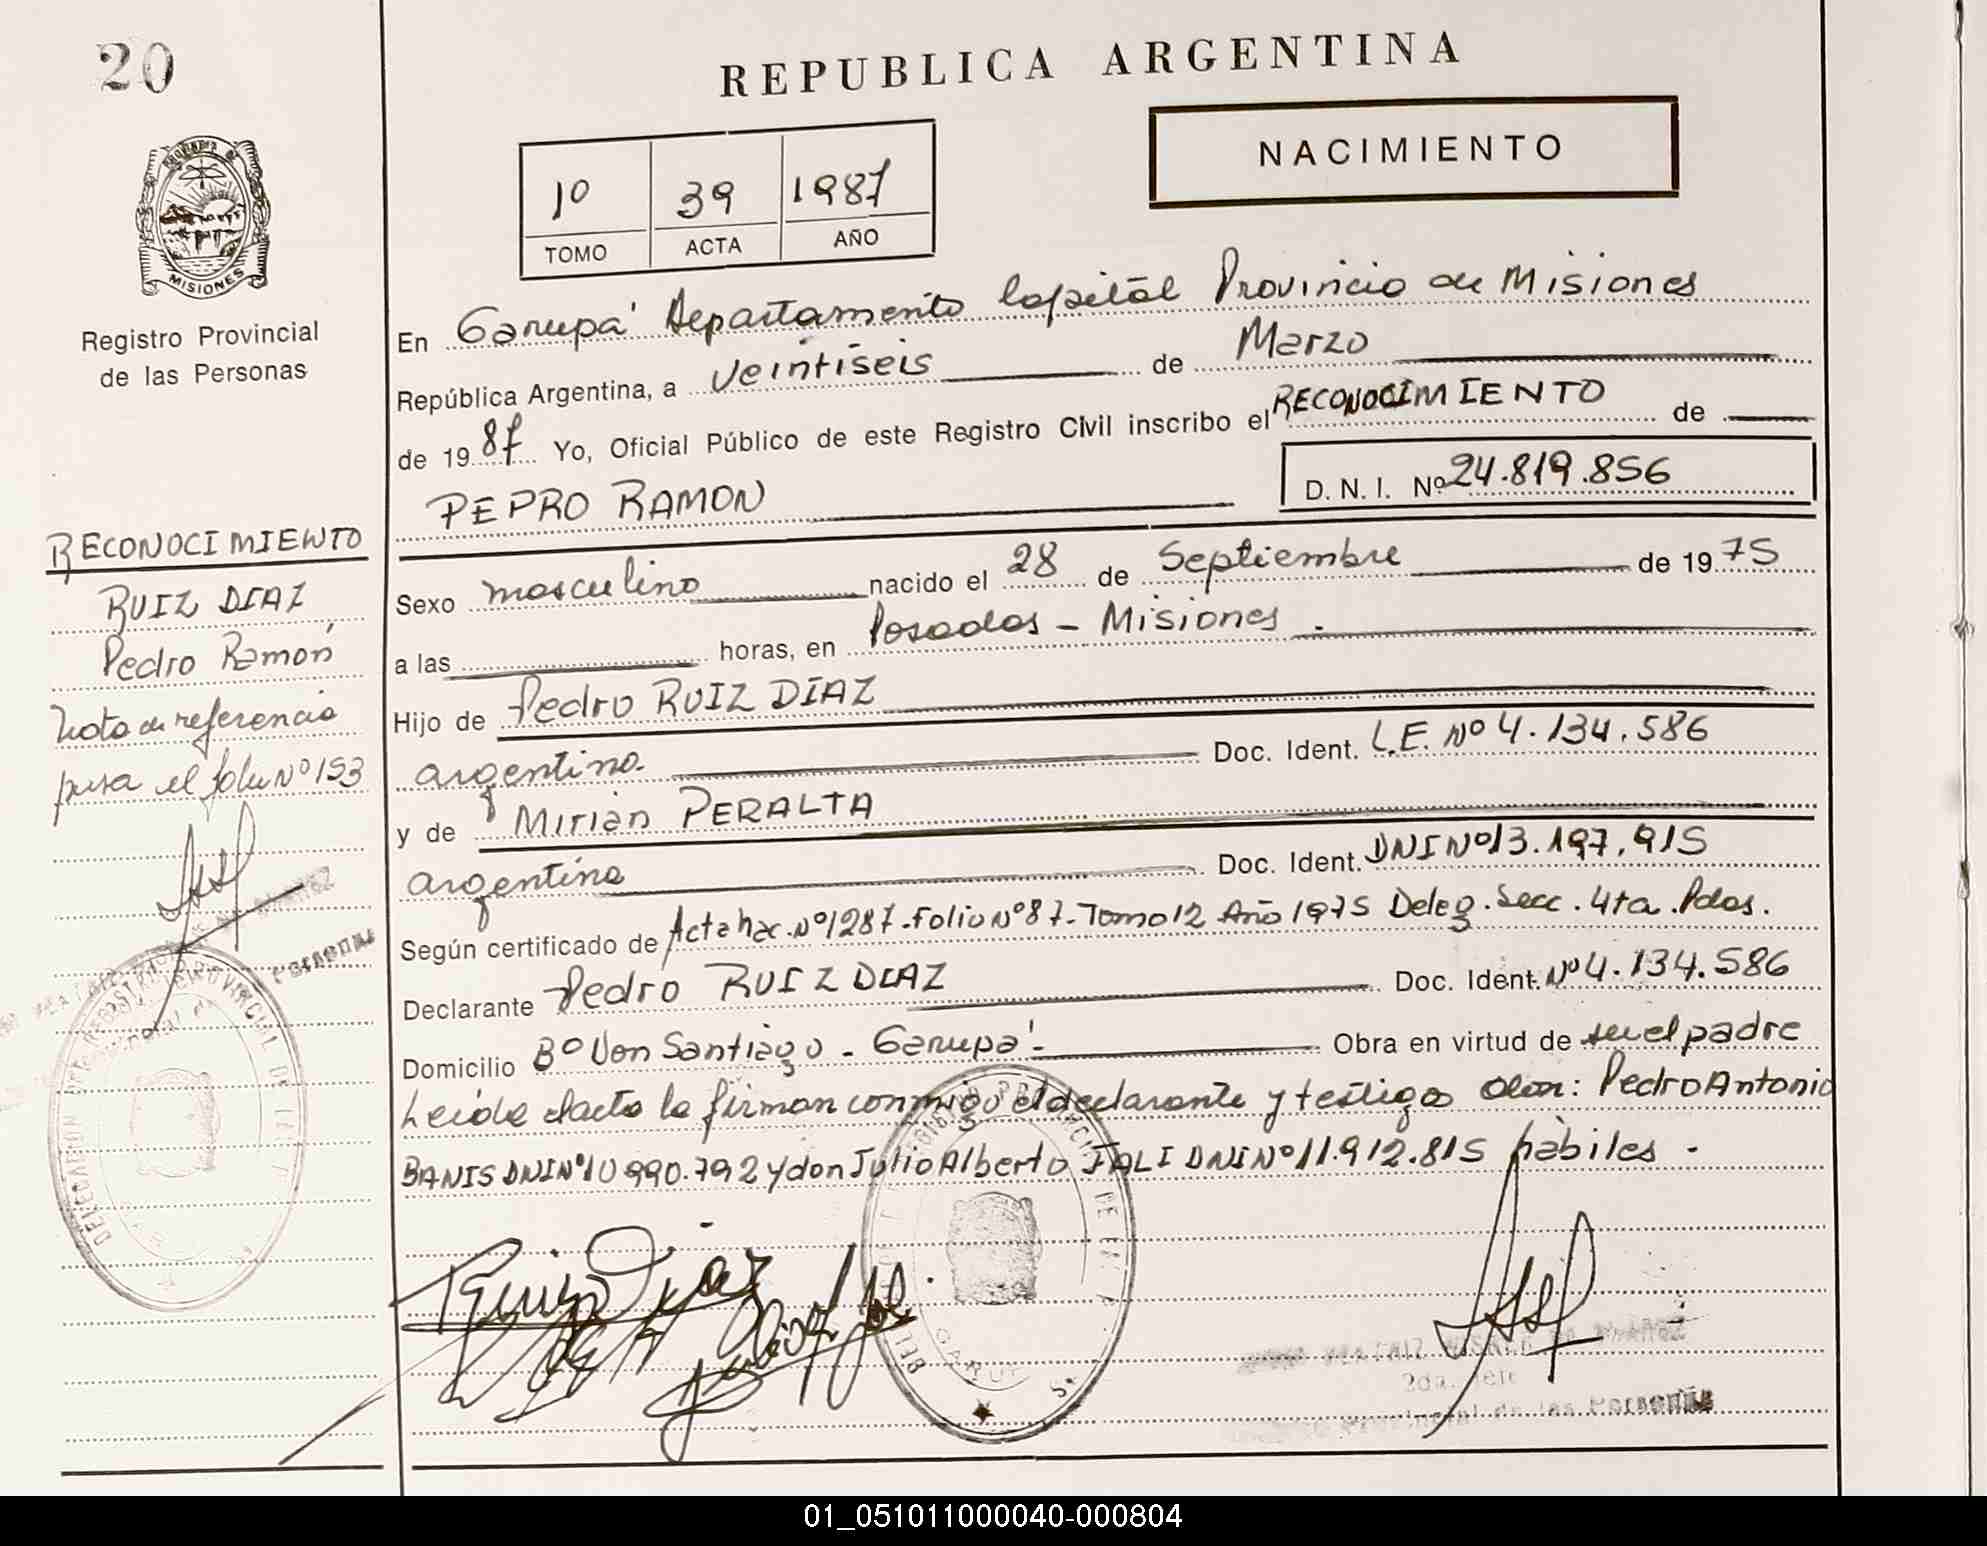 20
REPUBLICA ARGENTINA
NACIMIENTO
10 39 1987
TOMO ACTA AÑO
MISIONES
Registro Provincial
de las Personas
En Garupá Departamento Capital Provincia de Misiones
República Argentina, a veintiseis de Marzo
de 1987 Yo, Oficial Público de este Registro Civil inscribo el RECONOCIMIENTO de
D. N. I. Nº 24.819.856
PEDRO RAMON
RECONOCIMIENTO
RUIZ DIAZ
Pedro Ramón
Nota de referencia
pasa al folio Nº 153
Sexo masculino nacido el 28 de Septiembre de 1975
a las horas, en Posadas - Misiones.
Hijo de Pedro RUIZ DÍAZ
argentino. Doc. Ident. L.E. Nº 4.134.586
y de Mirian PERALTA
argentina Doc. Ident. DNI Nº 13.197.915
Según certificado de Acta Nac. Nº 1287-Folio Nº 87-Tomo 12 Año 1975 Deleg. Secc. 4ta. Pdas.
Declarante Pedro RUIZ DIAZ Doc. Ident. Nº 4.134.586
Domicilio Bº Don Santiago - Garupá- Obra en virtud de ser el padre
Leida el acta la firman conmigo el declarante y testigos don: Pedro Antonio
BANIS DNI Nº 10990.792 y don Julio Alberto JALI DNI Nº 11.912.815 hábiles -
Ruiz Diaz
2da. Jefe
Provincial de las Personas
01_051011000040-000804